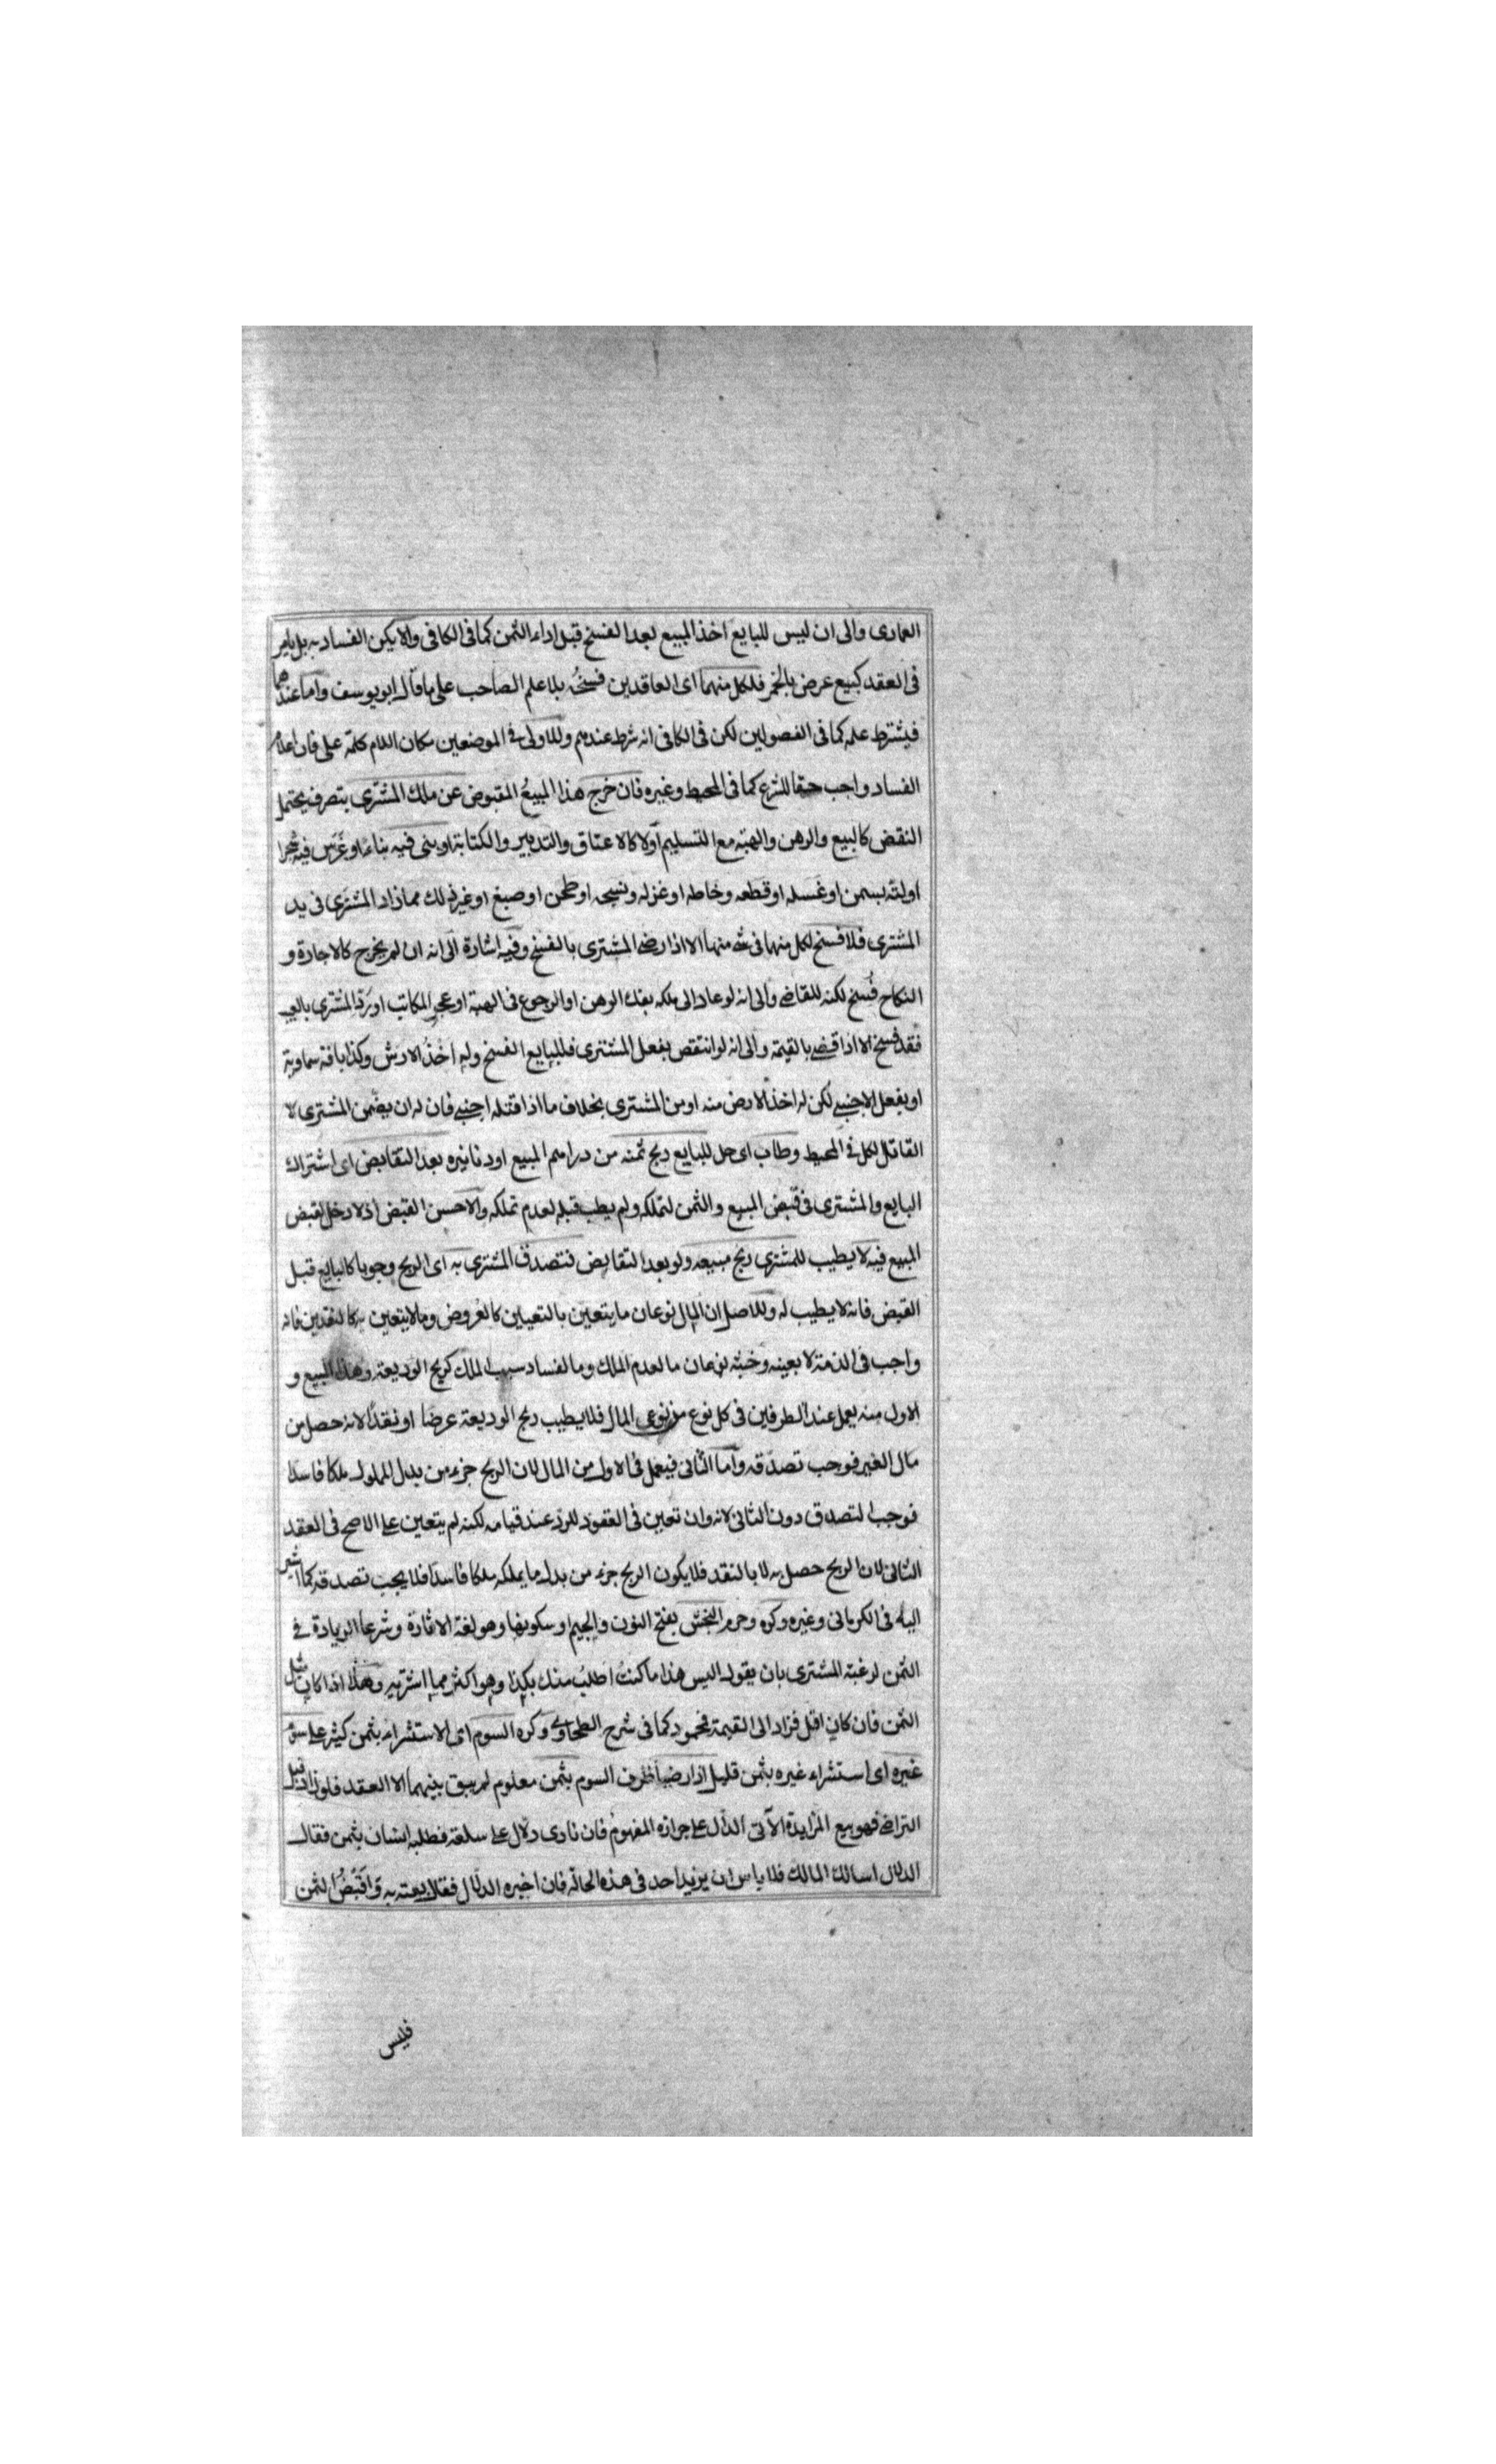 العمادى والى ان ليس للبايع اخذ المبيع بعد الفسخ قبل اداء الثمن كما فى الكافى والا يكن الفساد به بل بامر
فى العقد كبيع عرض بالخمر فلكل منهما اى العاقدين فسخه بلا علم الصاحب على ما قال ابو يوسف واما عندهما
فيشترط علمه كما فى الفصولين لكن فى الكافى انه شرط عندهم وللاولى فى الموضعين مكان اللام كلمة على فان اعلام
الفساد واجب حقا للشرع كما فى المحيط وغيره فان خرج هذا المبيع المقبوض عن ملك المشترى بتصرف يحتمل
النقض كالبيع والرهن والهبة مع التسليم اولا كالاعتاق والتدبير والكتابة او بنى فيه بناء او غرس فيه شجرا
اولته بسمن او غسله او قطعه وخاطه او غزله ونسجه او طحن او صبغ او غير ذلك مما زاد المشترى فى يد
المشترى فلا فسخ لكل منهما فى شئ منها الا اذا رضى المشترى بالفسخ وفيه اشارة الى انه ان لم يخرج كالاجارة و
النكاح فسخ لكنه للقاضى والى انه لو عاد الى ملكه بفك الرهن او الرجوع فى الهبة او عجز المكاتب او رد المشترى بالعيب
فقد فسخ الا اذا قضى بالقيمة والى انه لو انتقص بفعل المشترى فللبايع الفسخ وله اخذ الارش وكذا بافة سماوية
او بفعل الاجنبى لكن له اخذ الارض منه او من المشترى بخلاف ما اذا قتله اجنبى فان له ان يضمن المشترى لا
القاتل لكل فى المحيط وطاب اى حل للبايع ربح ثمنه من دراهم المبيع او دنانيره بعد التقابض اى اشتراك
البايع والمشترى فى قبض المبيع والثمن لتملكه ولم يطب قبله لعدم تملكه والاحسن القبض اذ لا دخل لقبض
المبيع فيه لا يطيب للمشترى ربح مبيعه ولو بعد التقابض فتتصدق المشترى به اى الربح وجوبا كالبايع قبل
القبض فانه لا يطيب له وللاصل ان المال نوعان ما يتعين بالتعيين كالعروض وما لا يتعين به كالنقدين فانه
واجب فى الذمة لا بعينه وخبثه نوعان ما لعدم الملك وما لفساد سبب الملك كربح الوديعة وهذا البيع و
الاول منه يعمل عند الطرفين فى كل نوع من نوعى المال فلا يطيب ربح الوديعة عرضا او نقدا لانه حصل من
مال الغير فوجب تصدقه واما الثانى فيعمل فى الاول من المال لان الربح جزء من بدل المملوك ملكا فاسدا
فوجب التصدق دون الثانى لانه وان تعين فى العقود للرد عند قيامه لكنه لم يتعين على الاصح فى العقد
الثانى لان الربح حصل به لا بالنقد فلا يكون الربح جزء من بدل ما يملكه ملكا فاسدا فلا يجب تصدقه كما اشير
اليه فى الكرمانى وغيره وكره وحرم النجش بفتح النون والجيم او سكونها وهو لغة الاثارة وشرعا الزيادة فى
الثمن لرغبة المشترى بان يقول اليس هذا ما كنت اطلب منك بكذا وهو اكثر مما اشتريه وهذا اذا كان مثل
الثمن فان كان اقل فزاد الى القيمة فمحمود كما فى شرح الطحاوى وكره السوم اى الاستشراء بثمن كثير على سوم
غيره اى استشراء غيره بثمن قليل اذا رضيا ظرف السوم بثمن معلوم لم يبق بينهما الا العقد فلو زاد قبل
التراضى فهو بيع المزايدة الآتى الدال على جوازه المفهوم فان نادى دلال على سلعة فطلبه انسان بثمن فقال
الدلال اسالك المالك فلا باس ان يزيد احد فى هذه الحالة فان اخبره الدلال فقال بعته به واقبض الثمن
فليس